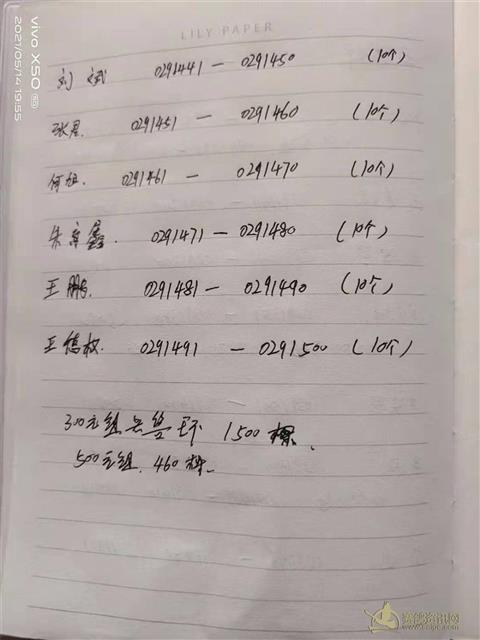 LILY PAPER
vivo X50 5G
2021/05/14 19:55
刘斌 0291441 — 0291450 (10个)
张星. 0291451 — 0291460 (10个)
何旭. 0291461 — 0291470 (10个)
朱家鑫. 0291471 — 0291480 (10个)
王鹏. 0291481 — 0291490 (10个)
王德权. 0291491 — 0291500 (10个)
300元组 1500棵.
500元组. 460
赛鸽资讯网